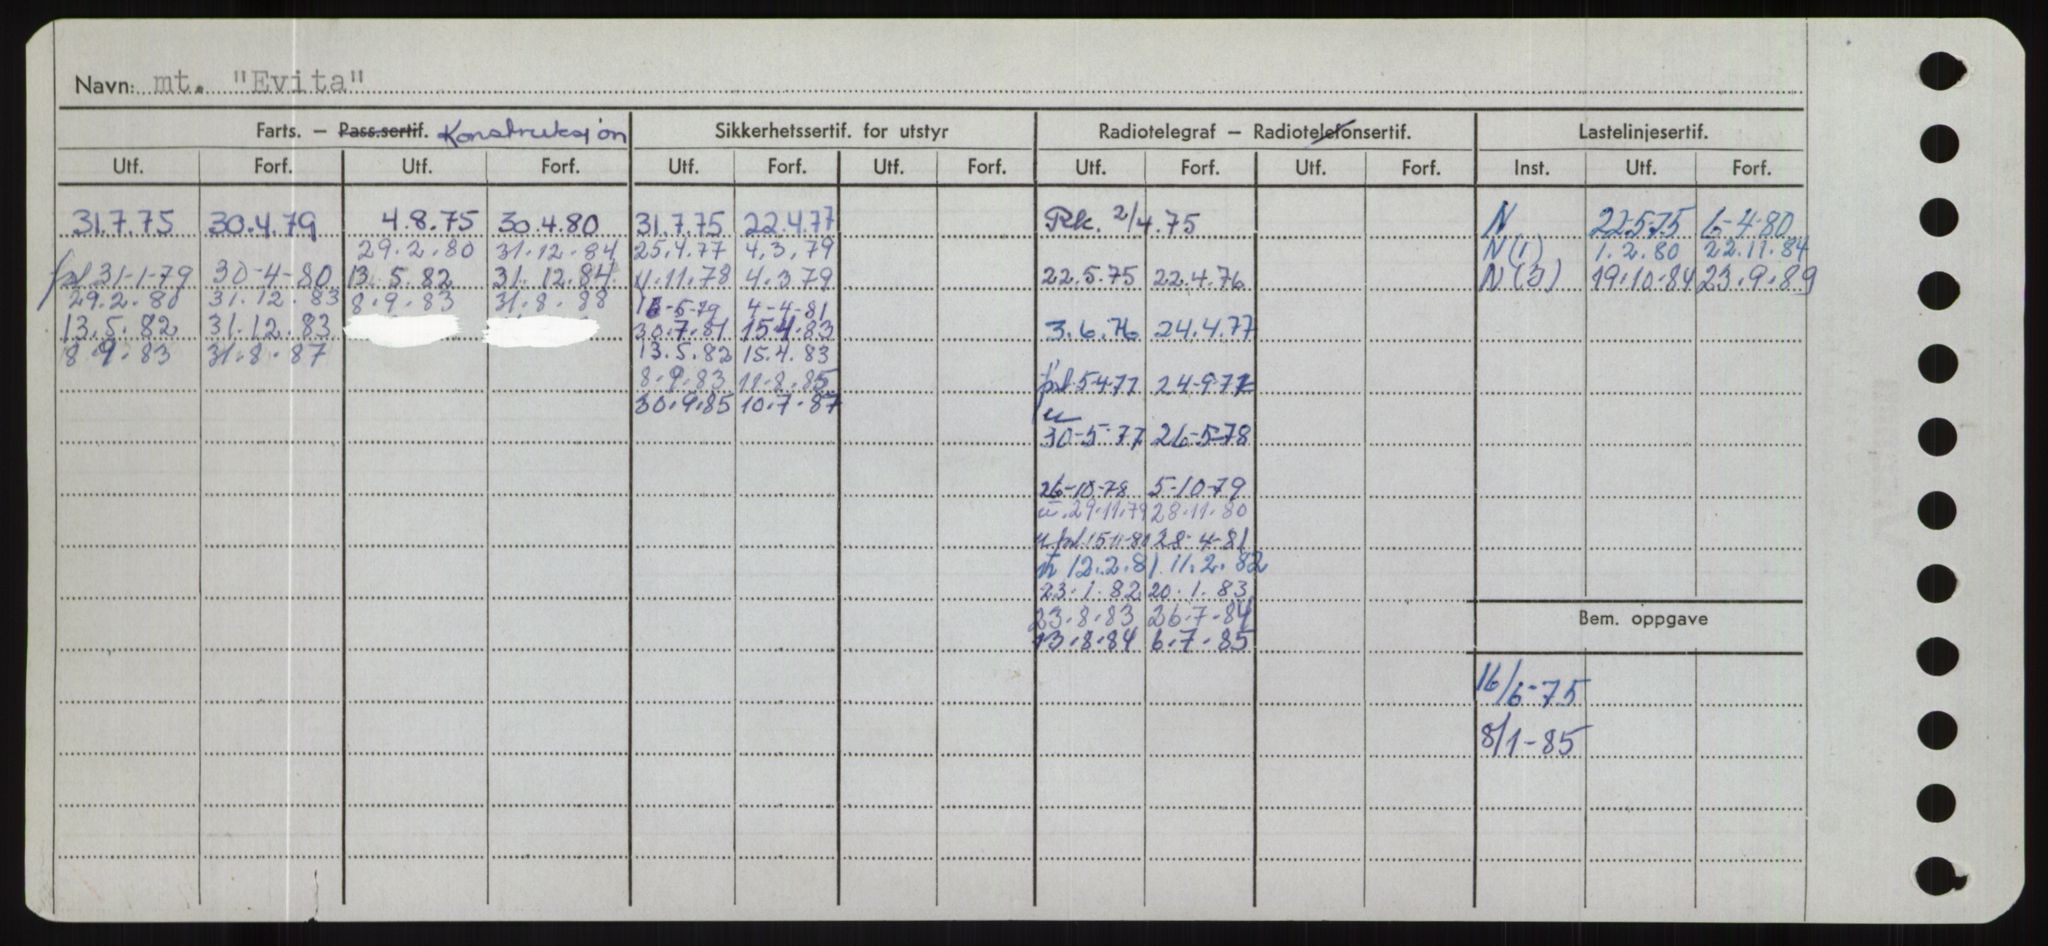 Navn: mt. "Evita"
Farts. – Pass.sertif. Konstruksjon Sikkerhetssertif. for utstyr Radiotelegraf – Radiotelefonsertif. Lastelinjesertif.
Utf. Forf. Utf. Forf. Utf. Forf. Utf. Forf. Utf. Forf. Utf. Forf. Inst. Utf. Forf.
31.7.75 30.4.79 4.8.75 30.4.80 31.7.75 22.4.77 Rk. 2/4.75 N 22-5-75 6-4-80
29.2.80 31.12.84 25.4.77 4.3.79 N(1) 1.2.80 22.11.84
fol 31-1-79 30-4-80 13.5.82 31.12.84 11.11.78 4.3.79 22.5.75 22.4.76 N(3) 19.10.84 23.9.89
29.2.80 31.12.83 8.9.83 31.8.88 16-5-79 4-4-81
13.5.82 31.12.83 30.7.81 15.4.83 3.6.76 24.4.77
8.9.83 31.8.87 13.5.82 15.4.83
8.9.83 11.8.85 fol 5-4-77 24-9-77
30.9.85 10.7.87
30-5-77 26-5-78
26-10-78 5-10-79
29.11.79 28.11.80
fol. 15-11-80 28-4-81
12.2.81 11.2.82
23.1.82 20.1.83
23.8.83 26.7.84
Bem. oppgave
13.8.84 6.7.85
16/6-75
8/1-85